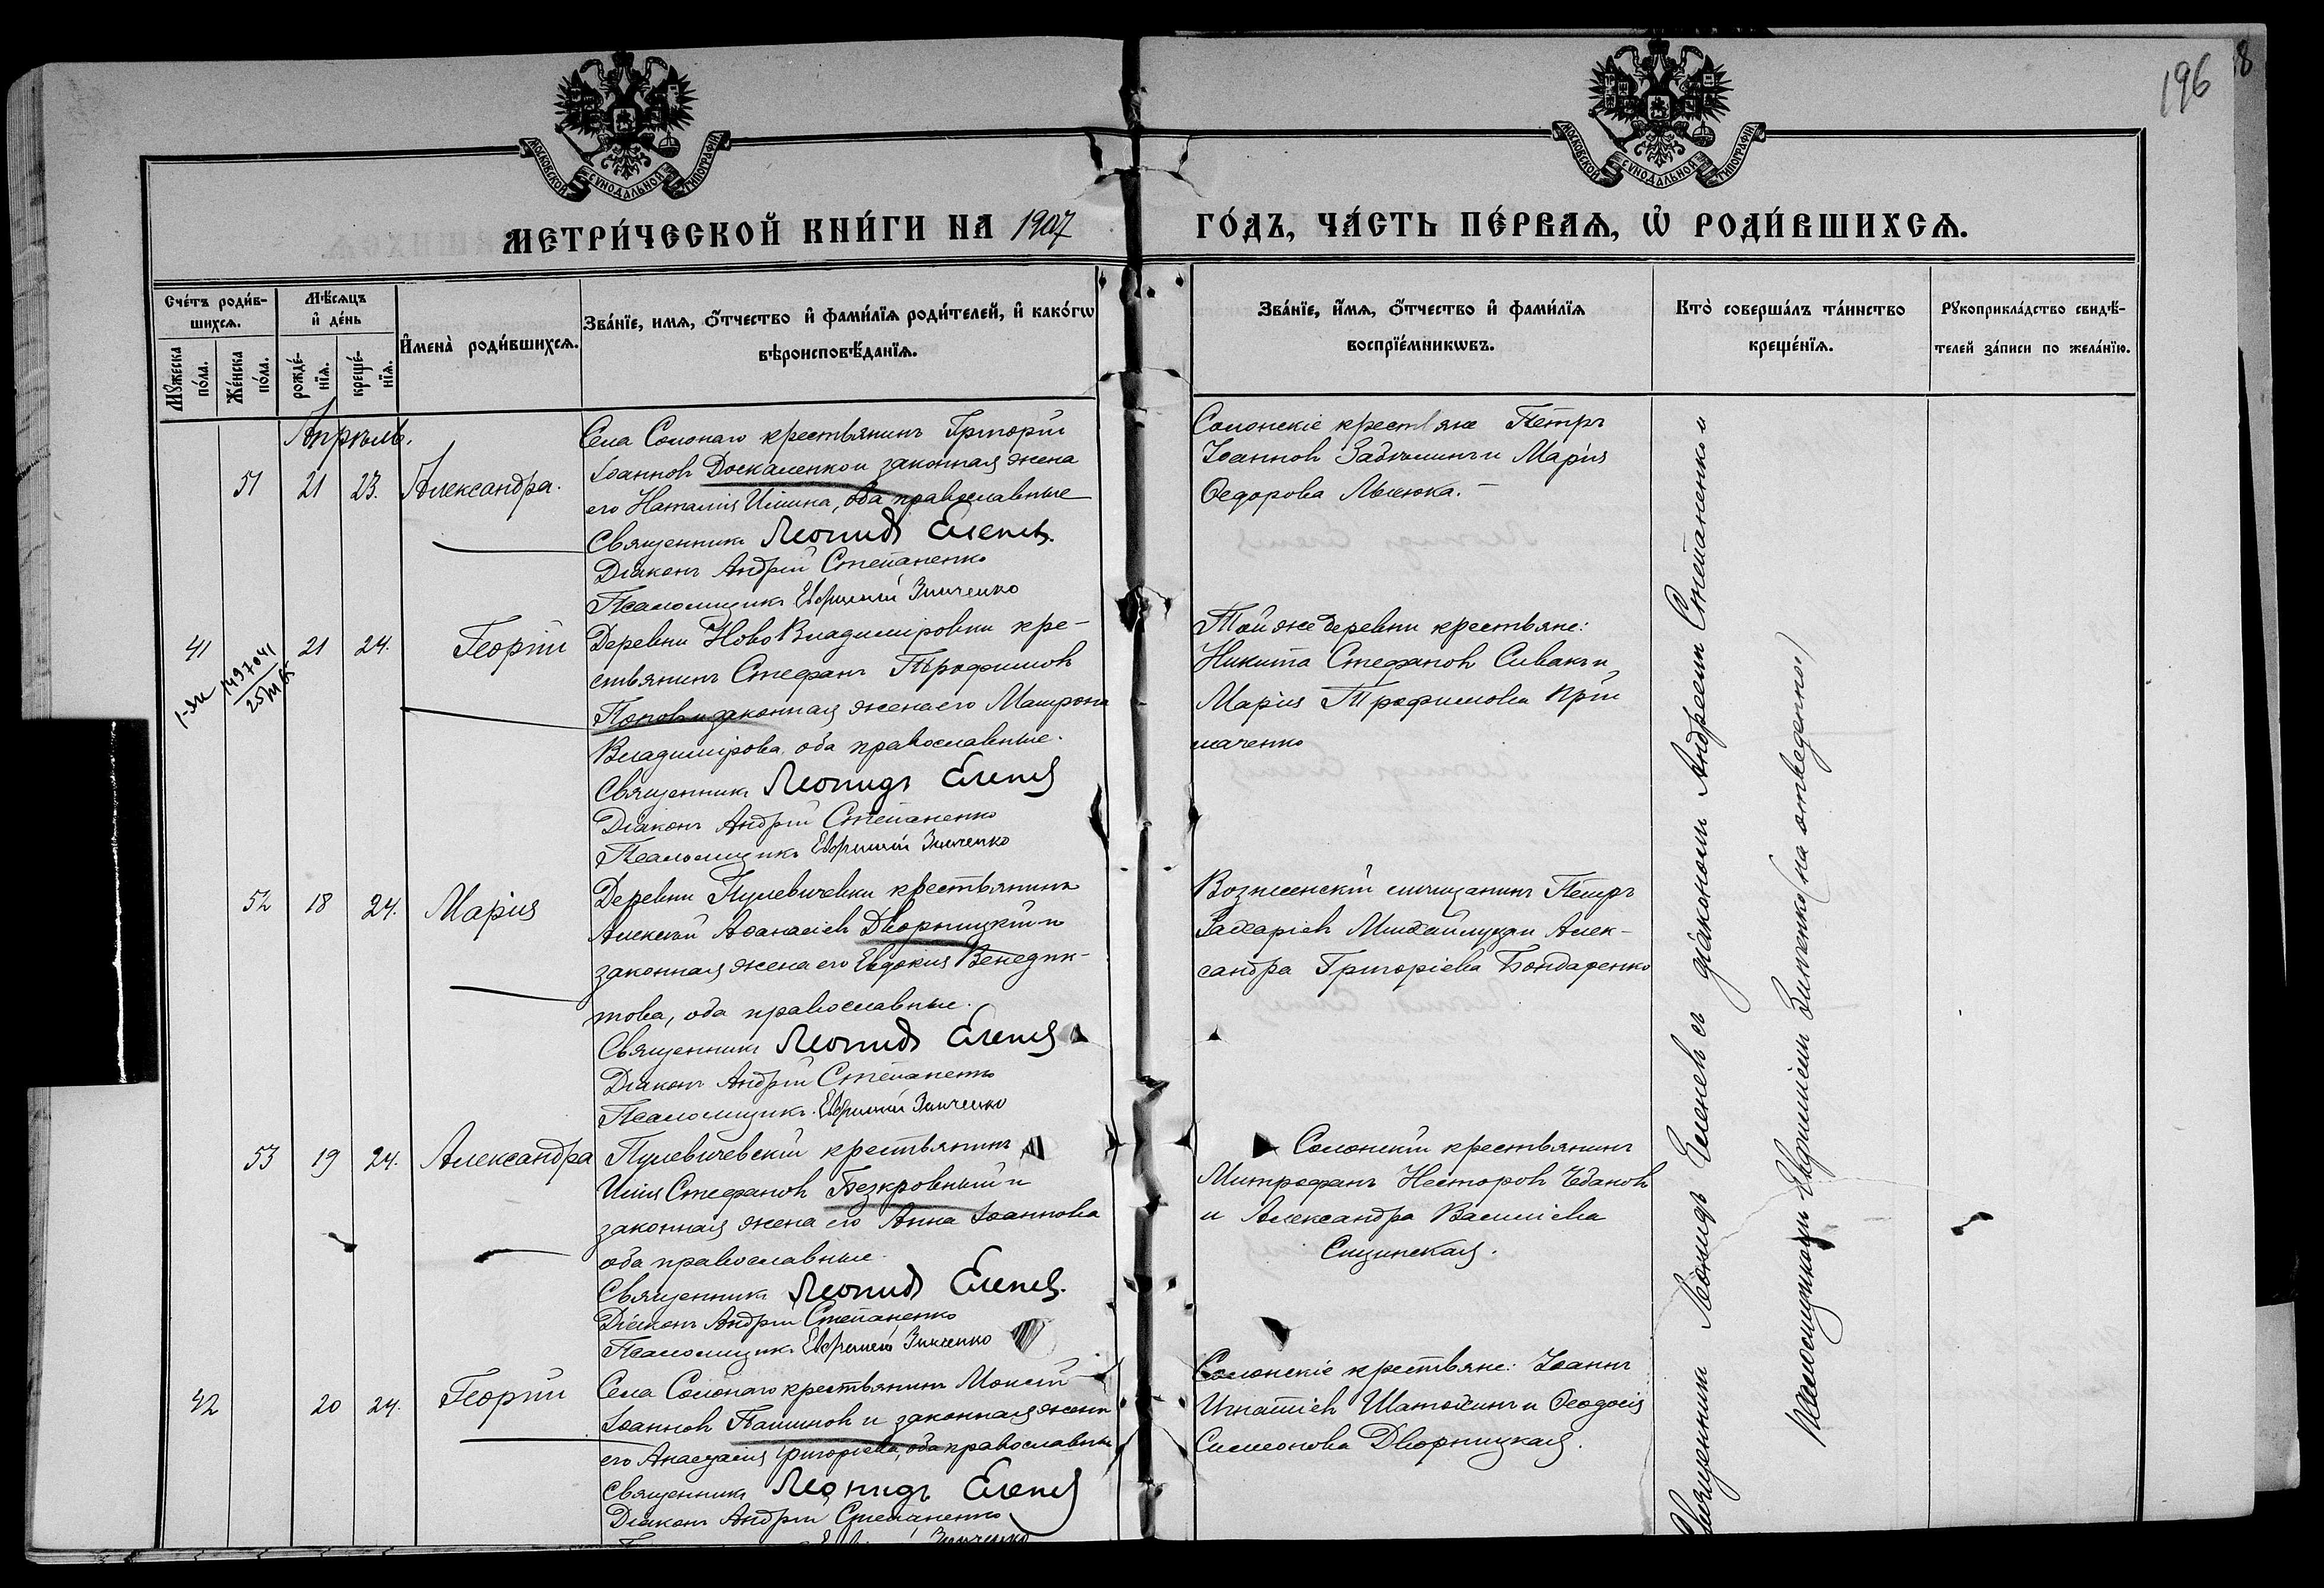 196
8
МОСКОВСКОЙ СѴНОДАЛЬНОЙ ТИПОГРАФІИ
МОСКОВСКОЙ СѴНОДАЛЬНОЙ ТИПОГРАФІИ
МЕТРИ́ЧЕСКОЙ КНИ́ГИ НА 1907 ГО́ДЪ, ЧА́СТЬ ПЕ́РВАЯ, Ѡ РОДИ́ВШИХСЯ.
Сче́тъ роди́в-
шихся.
Мꙋжеска по́ла.
Же́нска по́ла.
Мѣ́сяцъ
и҆ де́нь
рожде́-
нїя.
креще́-
нїя.
И҆мена̀ роди́вшихся.
Зва́нїе, имя, ѻ҆́тчество и҆ фами́лїя роди́телей, и҆ како́гѡ
вѣроисповѣ́данїя.
Зва́нїе, и҆́мя, ѻ҆́тчество и҆ фами́лїя
воспрїе́мникѡвъ.
Кто̀ соверша́лъ та́инство
креще́нїя.
Рꙋкоприкла́дство свидѣ́-
телей за́писи по жела́нїю.
Апрѣль.
51 21 23. Александра.
Села Солонаго крестьянинъ Григорій
Іоанновъ Доскаленко и законная жена
его Наталія Ильина, оба православные
Священникъ Леонидъ Еленевъ.
Діаконъ Андрей Степаненко
Псаломщикъ Евфимій Зинченко
Солонскіе крестьяне Петръ
Іоанновъ и Марія
Ѳедорова
41 21 24. Георгій
1-яи 1497041
25/III 65
Деревни Ново Владиміровки кре-
стьянинъ Стефанъ Трофимовъ
Поповъ и законная жена его Матрона
Владимірова, оба православные.
Священникъ Леонидъ Еленевъ
Діаконъ Андрей Степаненко
Псаломщикъ Евфимій Зинченко
Той же деревни крестьяне:
Никита Стефановъ Сивакъ и
Марія Трофимова При
маченко
52 18 24. Марія
Деревни Пулевичевки крестьянинъ
Алексѣй Аѳанасіевъ Дворницкій и
законная жена его Евдокія Венедик-
това, оба православные.
Священникъ Леонидъ Еленевъ
Діаконъ Андрей Степаненко
Псаломщикъ Евфимій Зинченко
Вознесенскій мѣщанинъ Петръ
Захаріевъ и Алек-
сандра Григоріева Бондаренко
53 19 24. Александра
Пулевичевскій крестьянинъ
Илія Стефановъ Безкровный и
законная жена его Анна Іоаннова
оба православные.
Священникъ Леонидъ Еленевъ.
Діаконъ Андрей Степаненко
Псаломщикъ Евфимій Зинченко
Солонскій крестьянинъ
Митрофанъ Несторовъ Ждановъ
и Александра Василіева
Сицинская.
42 20 24. Георгій
Села Солонаго крестьянинъ Моисей
Іоанновъ и законная жена
его Анастасія Григоріева, оба православные
Священникъ Леонидъ Еленевъ
Діаконъ Андрей Степаненко
Зинченко
Солонскіе крестьяне: Іоаннъ
Игнатіевъ Шатохинъ и Ѳеодосія
Симеонова Дворницкая.
Священникъ Леонидъ Еленевъ съ діакономъ Андреемъ Степаненко и
псаломщикомъ Евфиміемъ Зинченко (на отведенное)